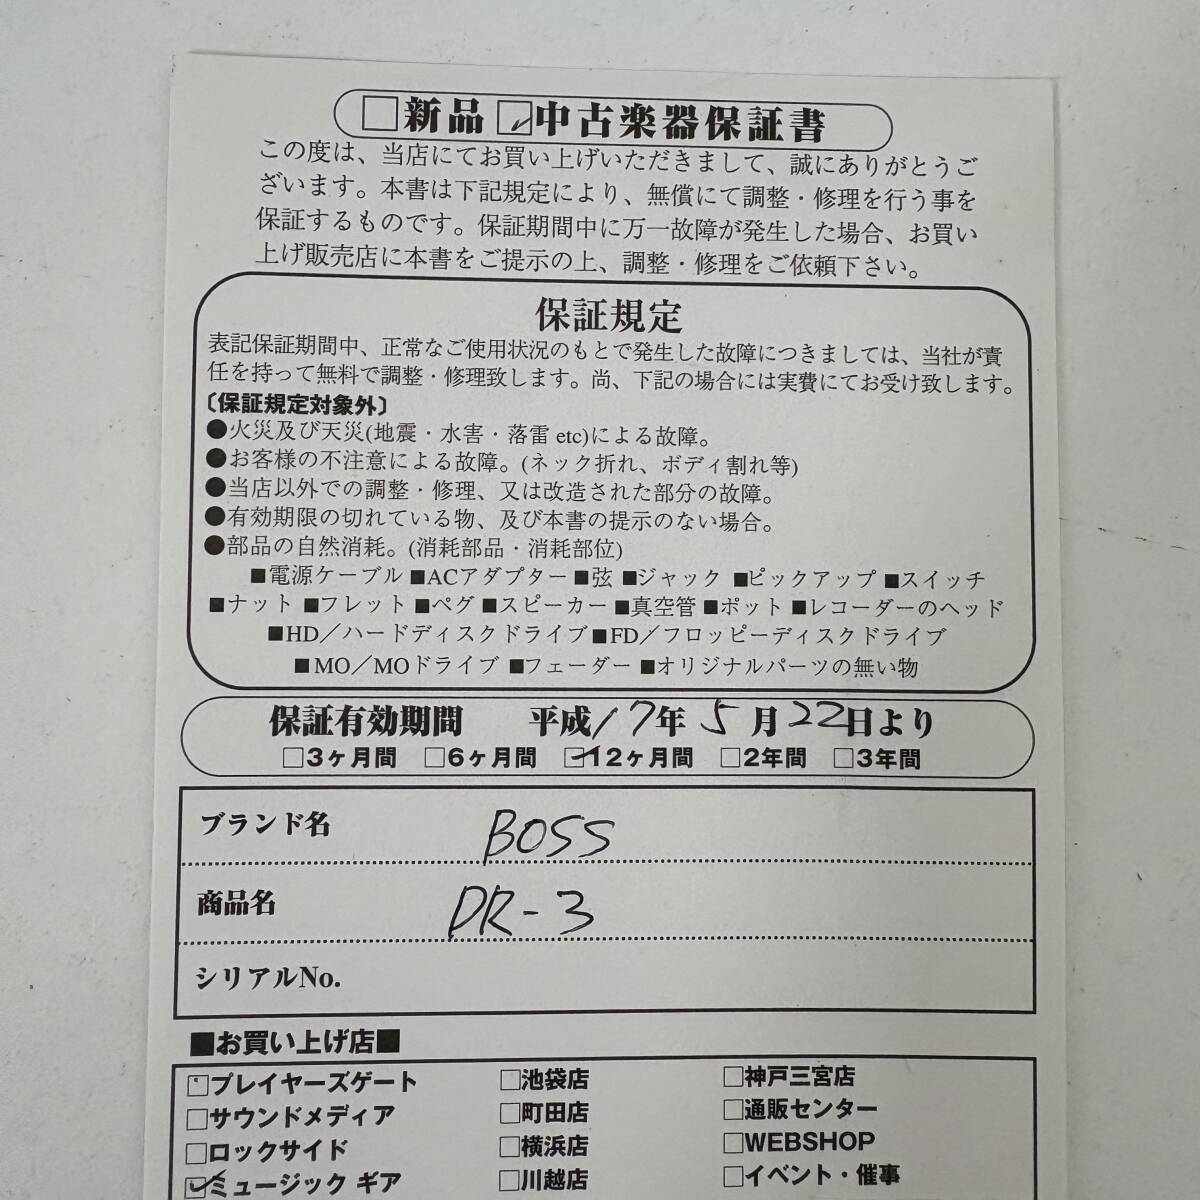 □新品 ☑中古楽器保証書
この度は、当店にてお買い上げいただきまして、誠にありがとうご
ざいます。本書は下記規定により、無償にて調整・修理を行う事を
保証するものです。保証期間中に万一故障が発生した場合、お買い
上げ販売店に本書をご提示の上、調整・修理をご依頼下さい。
保証規定
表記保証期間中、正常なご使用状況のもとで発生した故障につきましては、当社が責
任を持って無料で調整・修理致します。尚、下記の場合には実費にてお受け致します。
〔保証規定対象外〕
●火災及び天災(地震・水害・落雷 etc)による故障。
●お客様の不注意による故障。(ネック折れ、ボディ割れ等)
●当店以外での調整・修理、又は改造された部分の故障。
●有効期限の切れている物、及び本書の提示のない場合。
●部品の自然消耗。(消耗部品・消耗部位)
■電源ケーブル ■ACアダプター ■弦 ■ジャック ■ピックアップ ■スイッチ
■ナット ■フレット ■ペグ ■スピーカー ■真空管 ■ポット ■レコーダーのヘッド
■HD／ハードディスクドライブ ■FD／フロッピーディスクドライブ
■MO／MOドライブ ■フェーダー ■オリジナルパーツの無い物
保証有効期間 平成17年5月22日より
□3ヶ月間 □6ヶ月間 ☑12ヶ月間 □2年間 □3年間
ブランド名 BOSS
商品名 DR-3
シリアルNo.
■お買い上げ店■
□プレイヤーズゲート □池袋店 □神戸三宮店
□サウンドメディア □町田店 □通販センター
□ロックサイド □横浜店 □WEBSHOP
☑ミュージック ギア □川越店 □イベント・催事